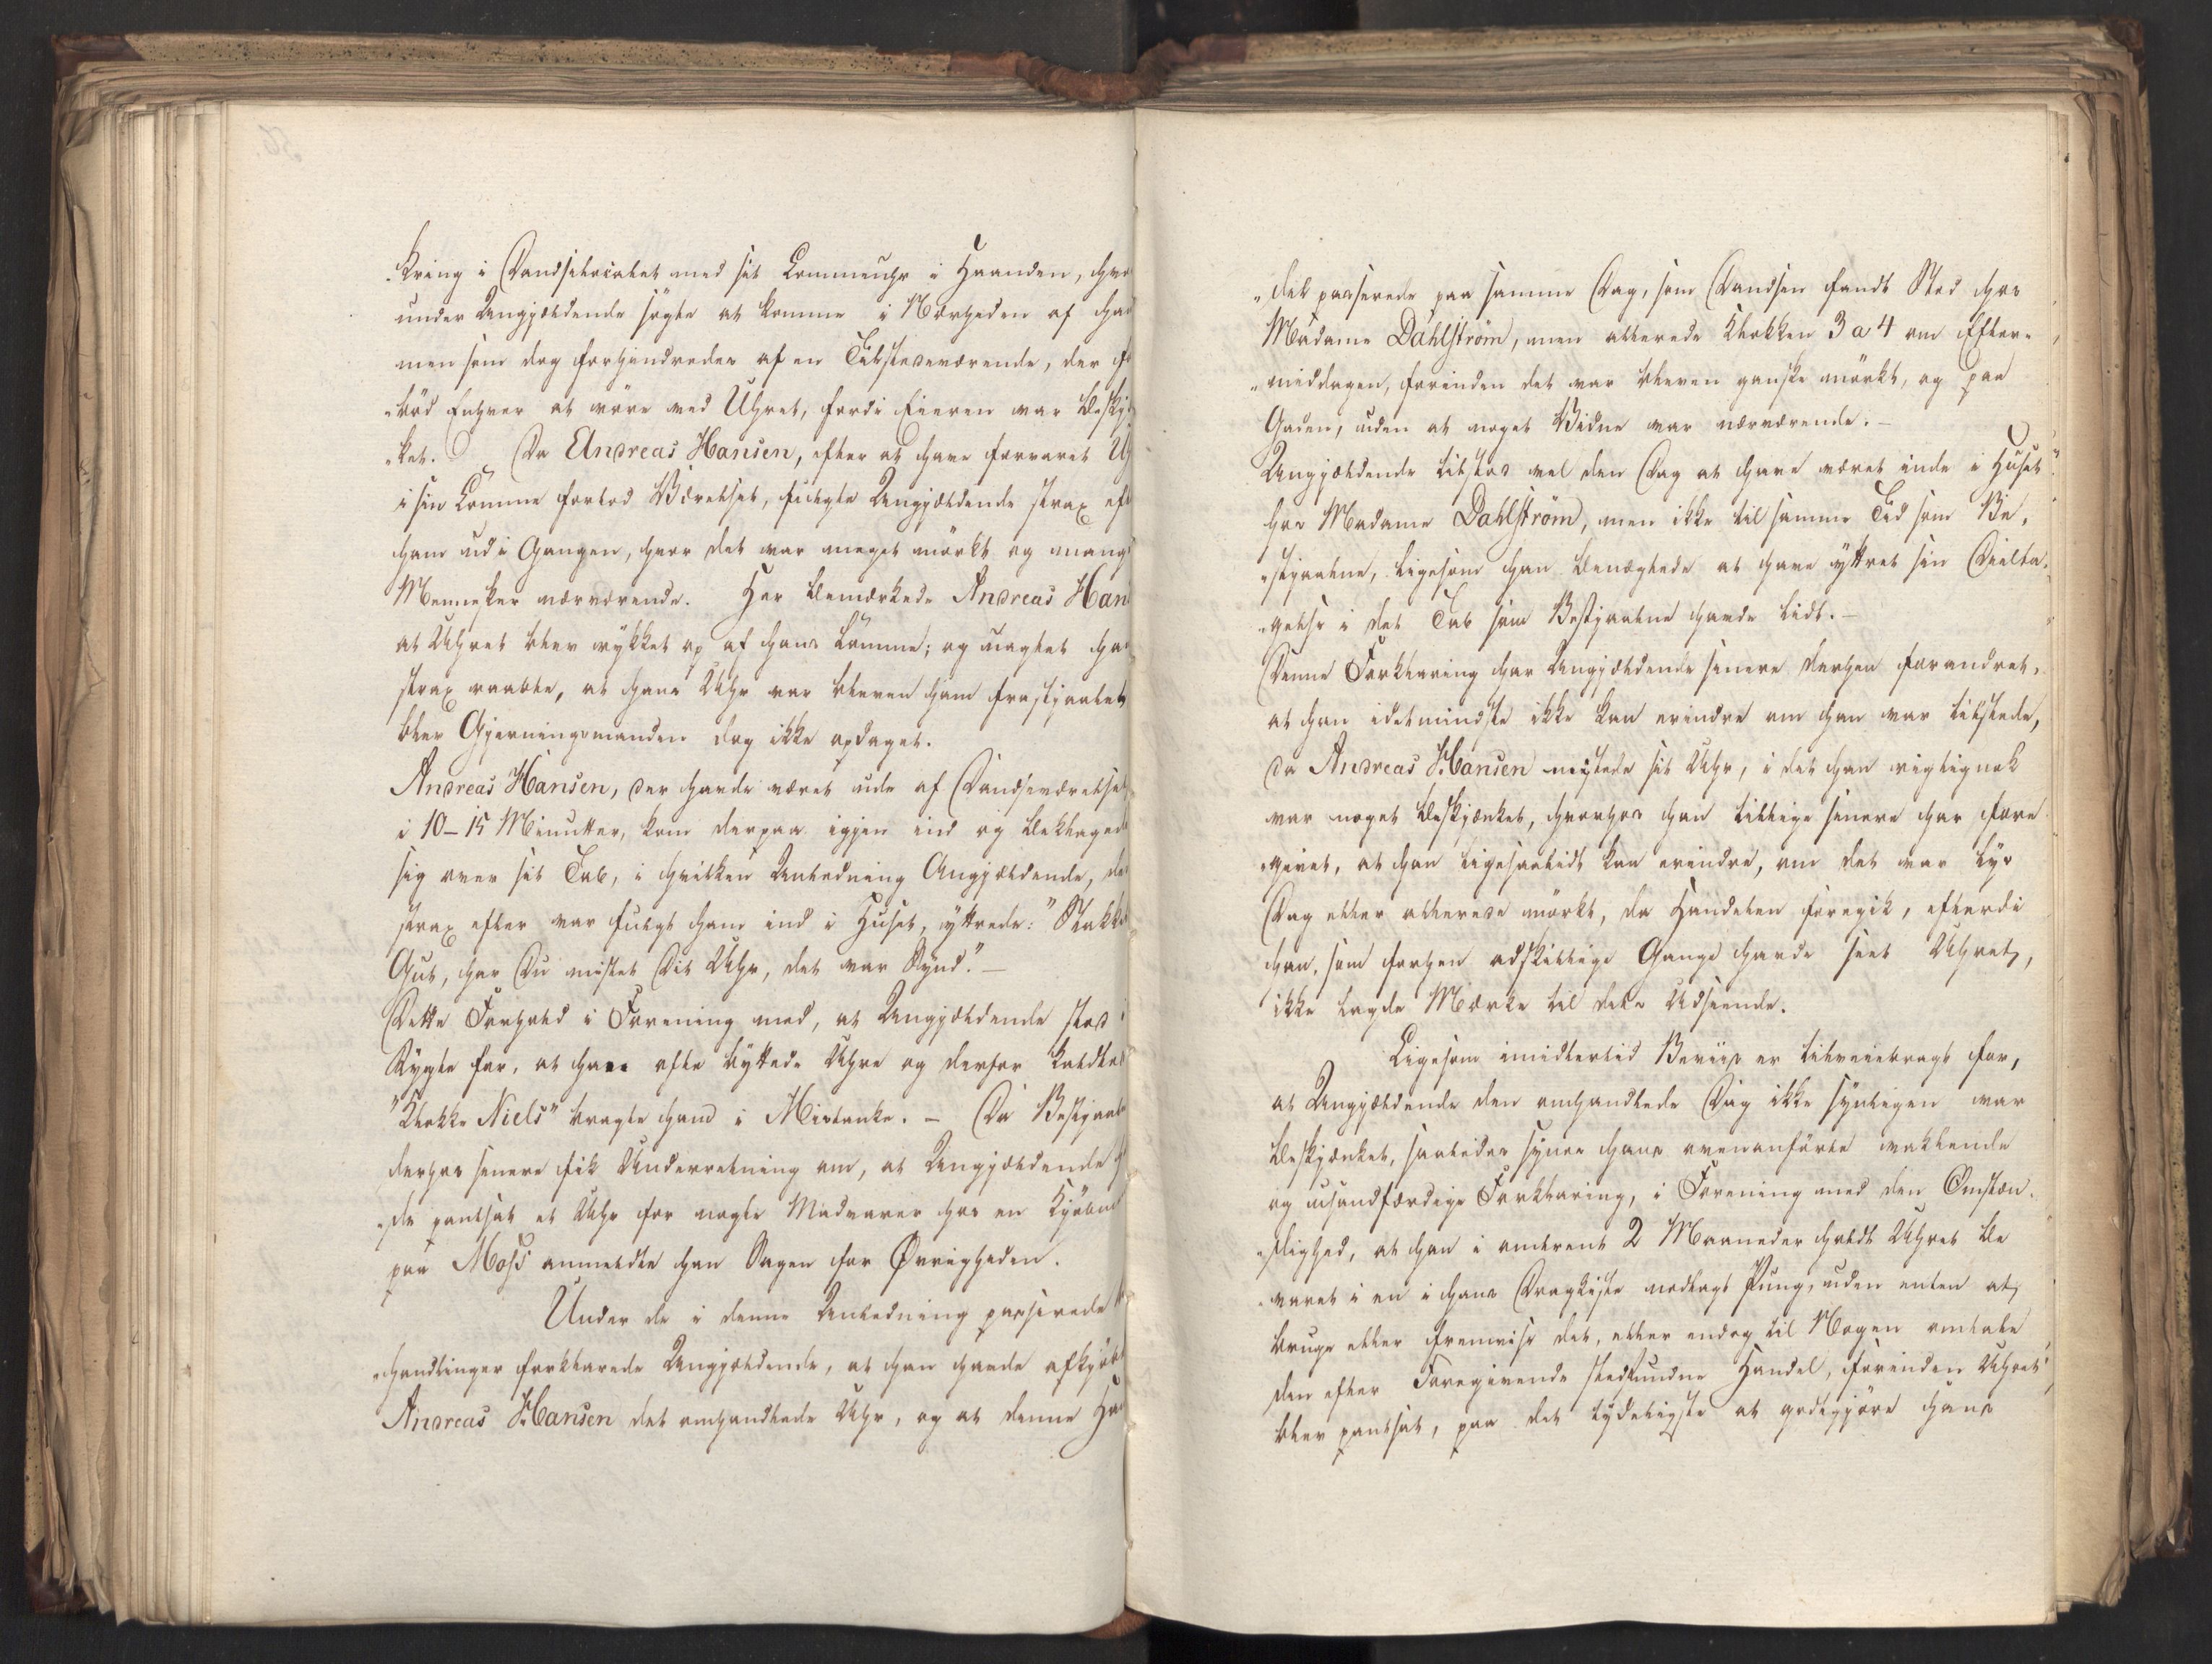 kring i Dandselocalet med sit Lommeuhr i Haanden, hvor
under Angjældende søgte at komme i Nærheden af ham
men som dog forhindredes af en Tilstedeværende, der for
"bød Enhver at røre ved Uhret, fordi Eieren var beskjæn
"ket. Da Andreas Hansen, efter at have forvaret Uh
i sin Lomme forlod Værelset, fulgte Angjældende strax eft
ham ud i Gangen, hvor det var meget mørkt og mange
Mennesker nærværende. Her bemærkede Andreas Han
at Uhret blev rykket op af hans Lomme; og uagtet han
strax raabte, at hans Uhr var bleven ham frastjaalet
blev Gjerningsmanden dog ikke opdaget.
Andreas Hansen, der havde været ude af Dandseværelset
i 10-15 Minutter, kom derpaa igjen ind og beklagede
sig over sit Tab, i hvilken Anledning Angjældende, der
strax efter var fulgt ham ind i Huset, yttrede: "Stakkels
Gut, har Du mistet Dit Uhr, det var Synd."—
Dette Forhold i Forening med, at Angjældende stod i
Rygte for, at have ofte byttede Uhre og derfor kaldtes
"Klokke Niels" bragte ham i Mistanke. — Da Bestjaalne
derhos senere fik Underretning om, at Angjældende h
"de pantsat et Uhr for nogle Madvarer hos en Kjøbmd
paa Moss anmeldte han Sagen for Øvrigheden.
Under de i denne Anledning passerede
"handlinger forklarede Angjældende, at han havde afkjøbt
Andreas Hansen det omhandlede Uhr, og at denne Han
"del passerede paa samme Dag, som Dandsen fandt Sted hos
Madame Dahlstrøm, men allerede Klokken 3 a 4 om Efter-
"middagen, forinden det var bleven ganske mørkt, og paa
Gaden, uden at noget Vidne var nærværende.—
Angjældende tilstod vel den Dag at have været inde i Huset
hos Madame Dahlstrøm, men ikke til samme Tid som Be,
"stjaalne, ligesom han benægtede at have yttret sin Delta,
"gelse i det Tab som Bestjaalne havde lidt.—
Denne Forklaring har Angjældende senere derhen forandret,
at han idetmindste ikke kan erindre om han var tilstede,
da Andreas Hansen mistede sit Uhr, i det han rigtignok
var noget beskjænket, hvorhos han tillige senere har fore
"givet, at han ligesaalidt kan erindre, om det var lys
Dag eller allerede mørkt, da Handelen foregik, efterdi
han, som forhen adskillige Gange havde seet Uhret,
ikke lagde Mærke til dets Udseende.
Ligesom imidlertid Beviis er tilveiebragt for,
at Angjældende den omhandlede Dag ikke synligen var
beskjænket, saaledes synes hans ovenanførte vaklende
og usandfærdige Forklaring, i Forening med den Omstæn.
"dighed, at han i omtrent 2 Maaneder holdt Uhret be
"varet i en i hans Dragkiste nedlagt Pung, uden enten at
bruge eller fremvise det, eller endog til Nogen omtale
den efter Foregivende stedfundne Handel, forinden Uhret
blev pantsat, paa det tydeligste at godtgjøre hans